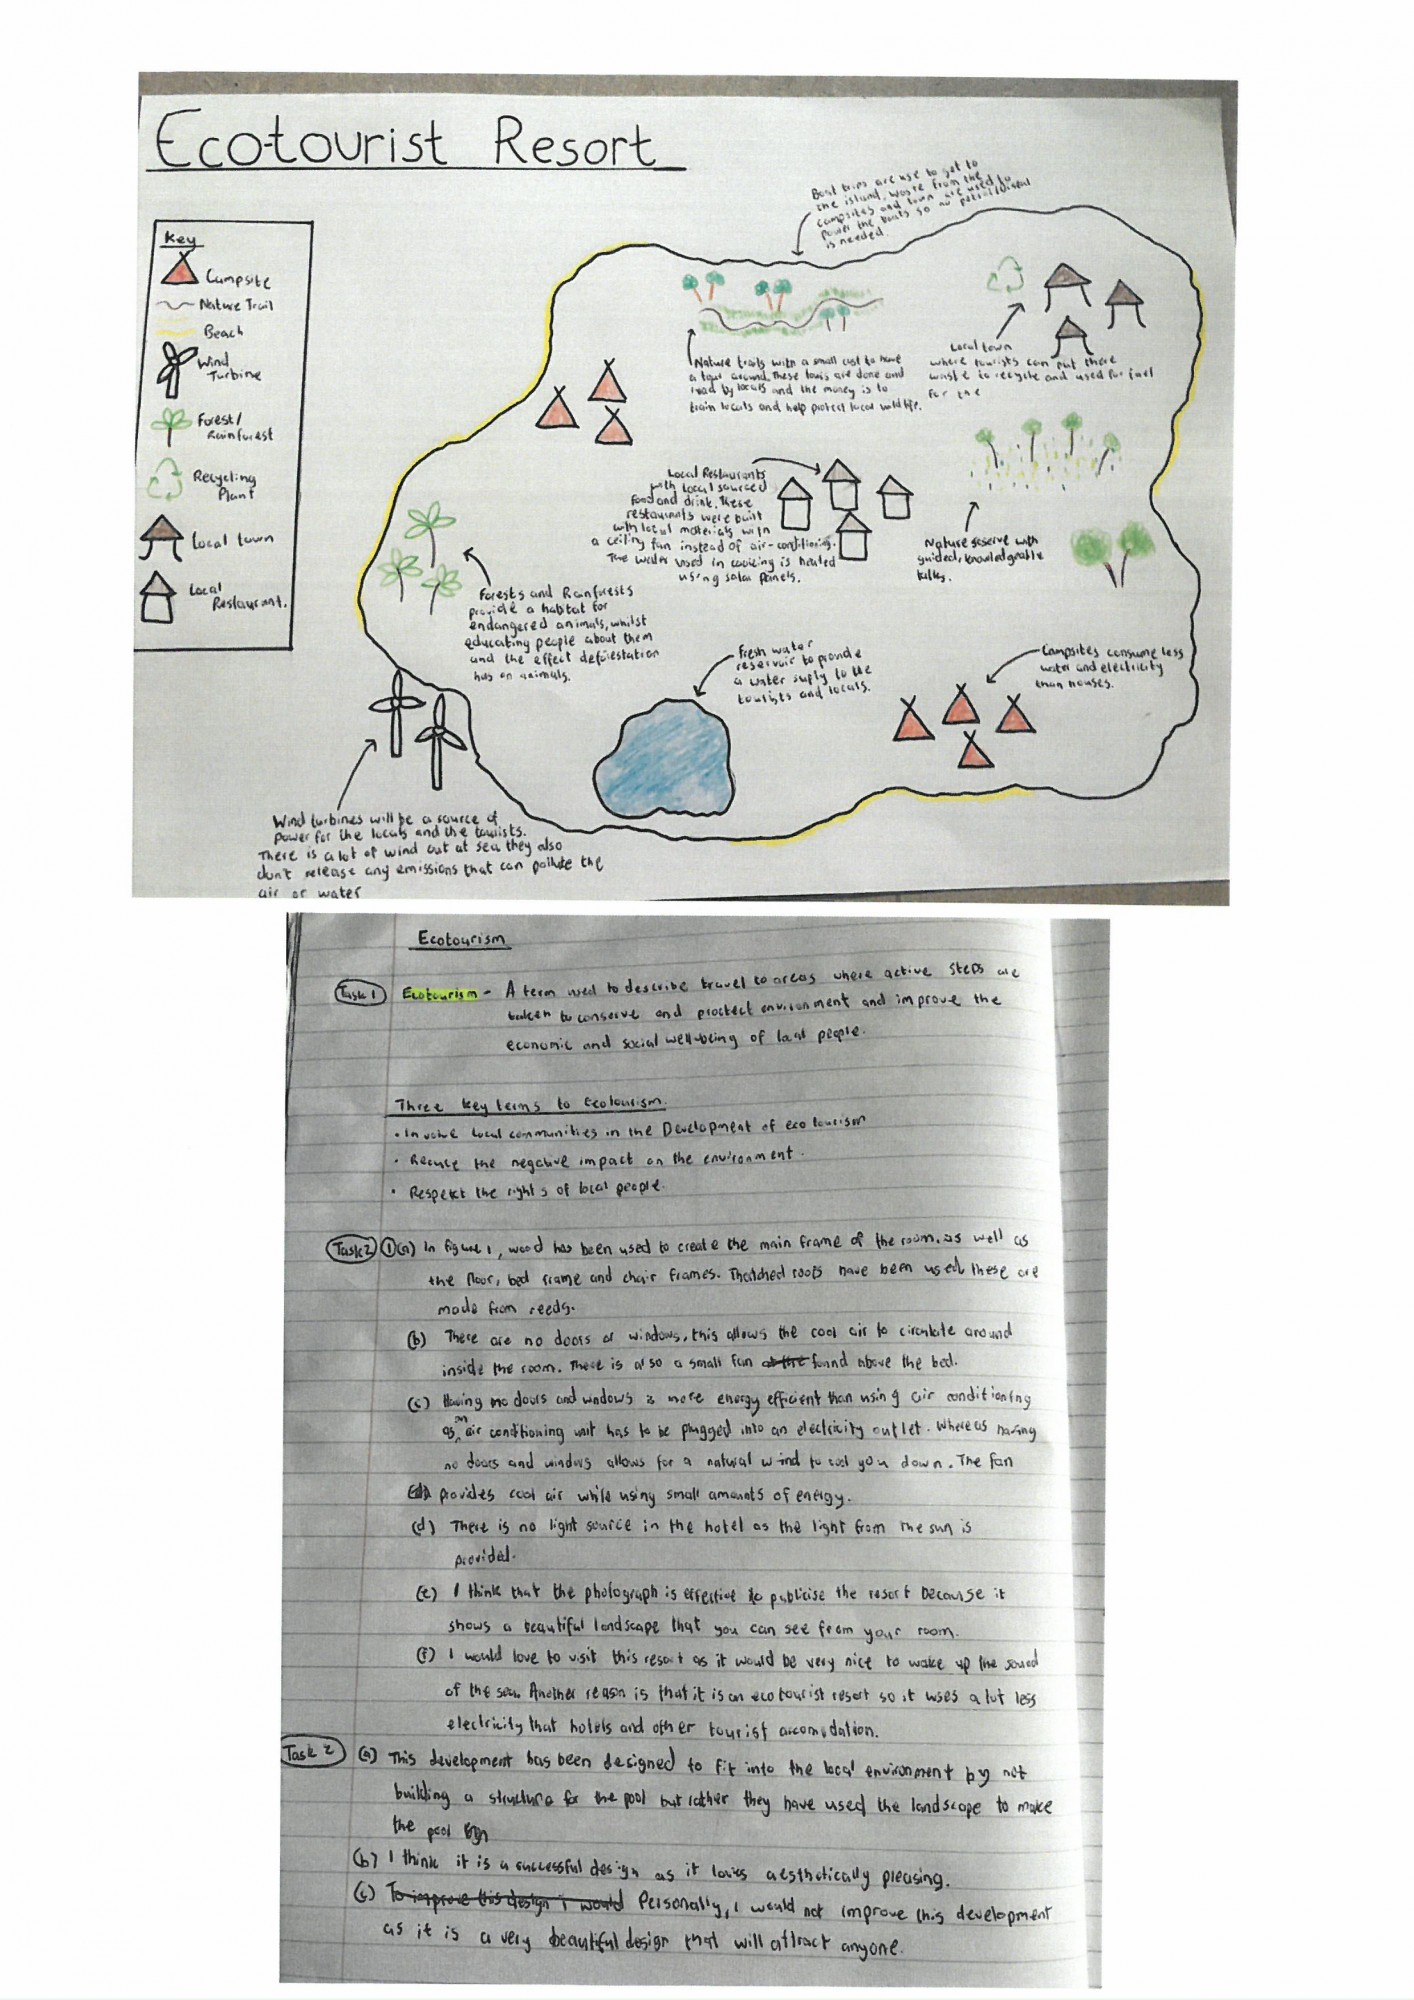 Ecotourist Resort
Key
Campsite
Nature Trail
Beach
Wind
Turbine
Forest/
Rainforest
Recycling
Plant
Local town
Local
Restaurant.
Boat trips are use to get to
the island, waste from the
campsites and town are used to
power the boats so no petrol/diesal
is needed.
Nature trails with a small cost to have
a tour around. These tours are done and
lead by locals and the money is to
train locals and help protect local wildlife.
Local town
where tourists can put there
waste to recycle and used for fuel
for the
Local Restaurants
with local sourced
food and drink. These
restaurants were built
with local materials with
a ceiling fan instead of air-conditioning.
The water used in cooking is heated
using solar panels.
Nature reserve with
guided, knowledgable
talks.
Forests and Rainforests
provide a habitat for
endangered animals, whilst
educating people about them
and the effect deforestation
has on animals.
Fresh water
reservoir to provide
a water suply to the
tourists and locals.
Campsites consume less
water and electricity
than houses.
Wind turbines will be a source of
power for the locals and the tourists.
There is a lot of wind out at sea they also
don't release any emissions that can pollute the
air or water
Ecotourism
Task 1 Ecotourism - A term used to describe travel to areas where active steps are
taken to conserve and proctect environment and improve the
economic and social wellbeing of local people.
Three key terms to Ecotourism.
• Involve local communities in the Development of eco tourism
• Reduce the negative impact on the environment.
• Respekt the rights of local people.
Task 2 1 (a) In figure 1, wood has been used to create the main frame of the room, as well as
the floor, bed frame and chair frames. Thatched roofs have been used, these are
made from reeds.
(b) There are no doors or windows, this allows the cool air to circulate around
inside the room. There is also a small fan at the found above the bed.
(c) Having no doors and windows is more energy efficient than using air conditioning
as an air conditioning unit has to be plugged into an electricity outlet. Whereas having
no doors and windows allows for a natural wind to cool you down. The fan
provides cool air while using small amounts of energy.
(d) There is no light source in the hotel as the light from the sun is
provided.
(e) I think that the photograph is effective to publicise the resort because it
shows a beautiful landscape that you can see from your room.
(f) I would love to visit this resort as it would be very nice to wake up the sound
of the sea. Another reason is that it is an eco tourist resort so it uses a lot less
electricity that hotels and other tourist accomodation.
Task 2 (a) This development has been designed to fit into the local environment by not
building a structure for the pool but rather they have used the landscape to make
the pool
(b) I think it is a successful design as it looks aesthetically pleasing.
(c) To improve this design i would Personally, I would not improve this development
as it is a very beautiful design that will attract anyone.